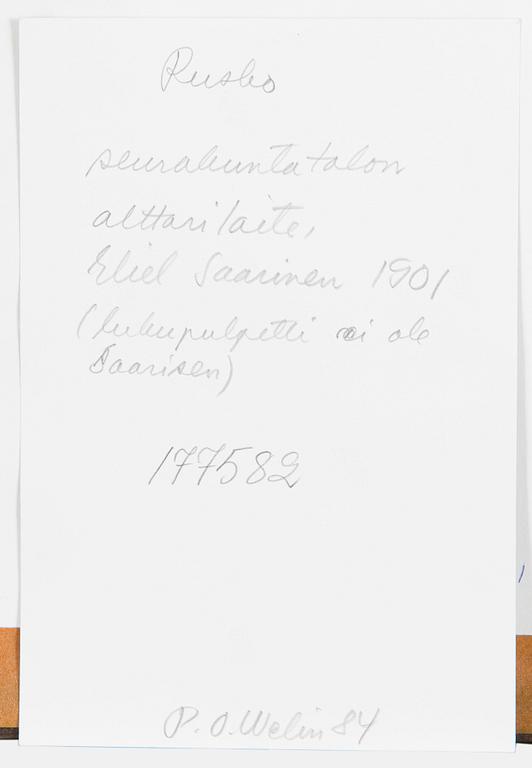 Rusko
seurakuntatalon
alttarilaite,
Eliel Saarinen 1901
(lukupulpetti ei ole
Saarisen)
177582
P. O. Welin 84